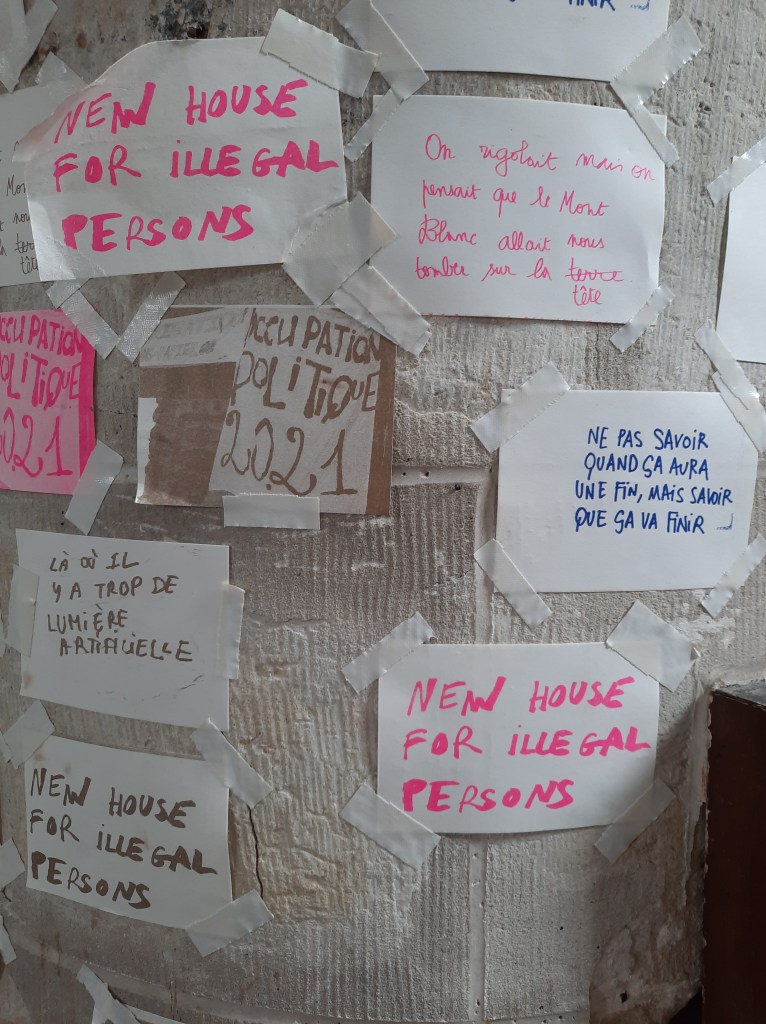 FINIR
NEW HOUSE
FOR ILLEGAL
PERSONS
On rigolait mais on
pensait que le Mont
Blanc allait nous
tomber sur la terre
tête
Mon
nou
la terre
tête
OCCUPATION
POLITIQUE
2021
OCCUPATION
POLITIQUE
2021
NE PAS SAVOIR
QUAND ÇA AURA
UNE FIN, MAIS SAVOIR
QUE ÇA VA FINIR
LÀ OÙ IL
Y A TROP DE
LUMIÈRE
ARTIFICIELLE
NEW HOUSE
FOR ILLEGAL
PERSONS
NEW HOUSE
FOR ILLEGAL
PERSONS